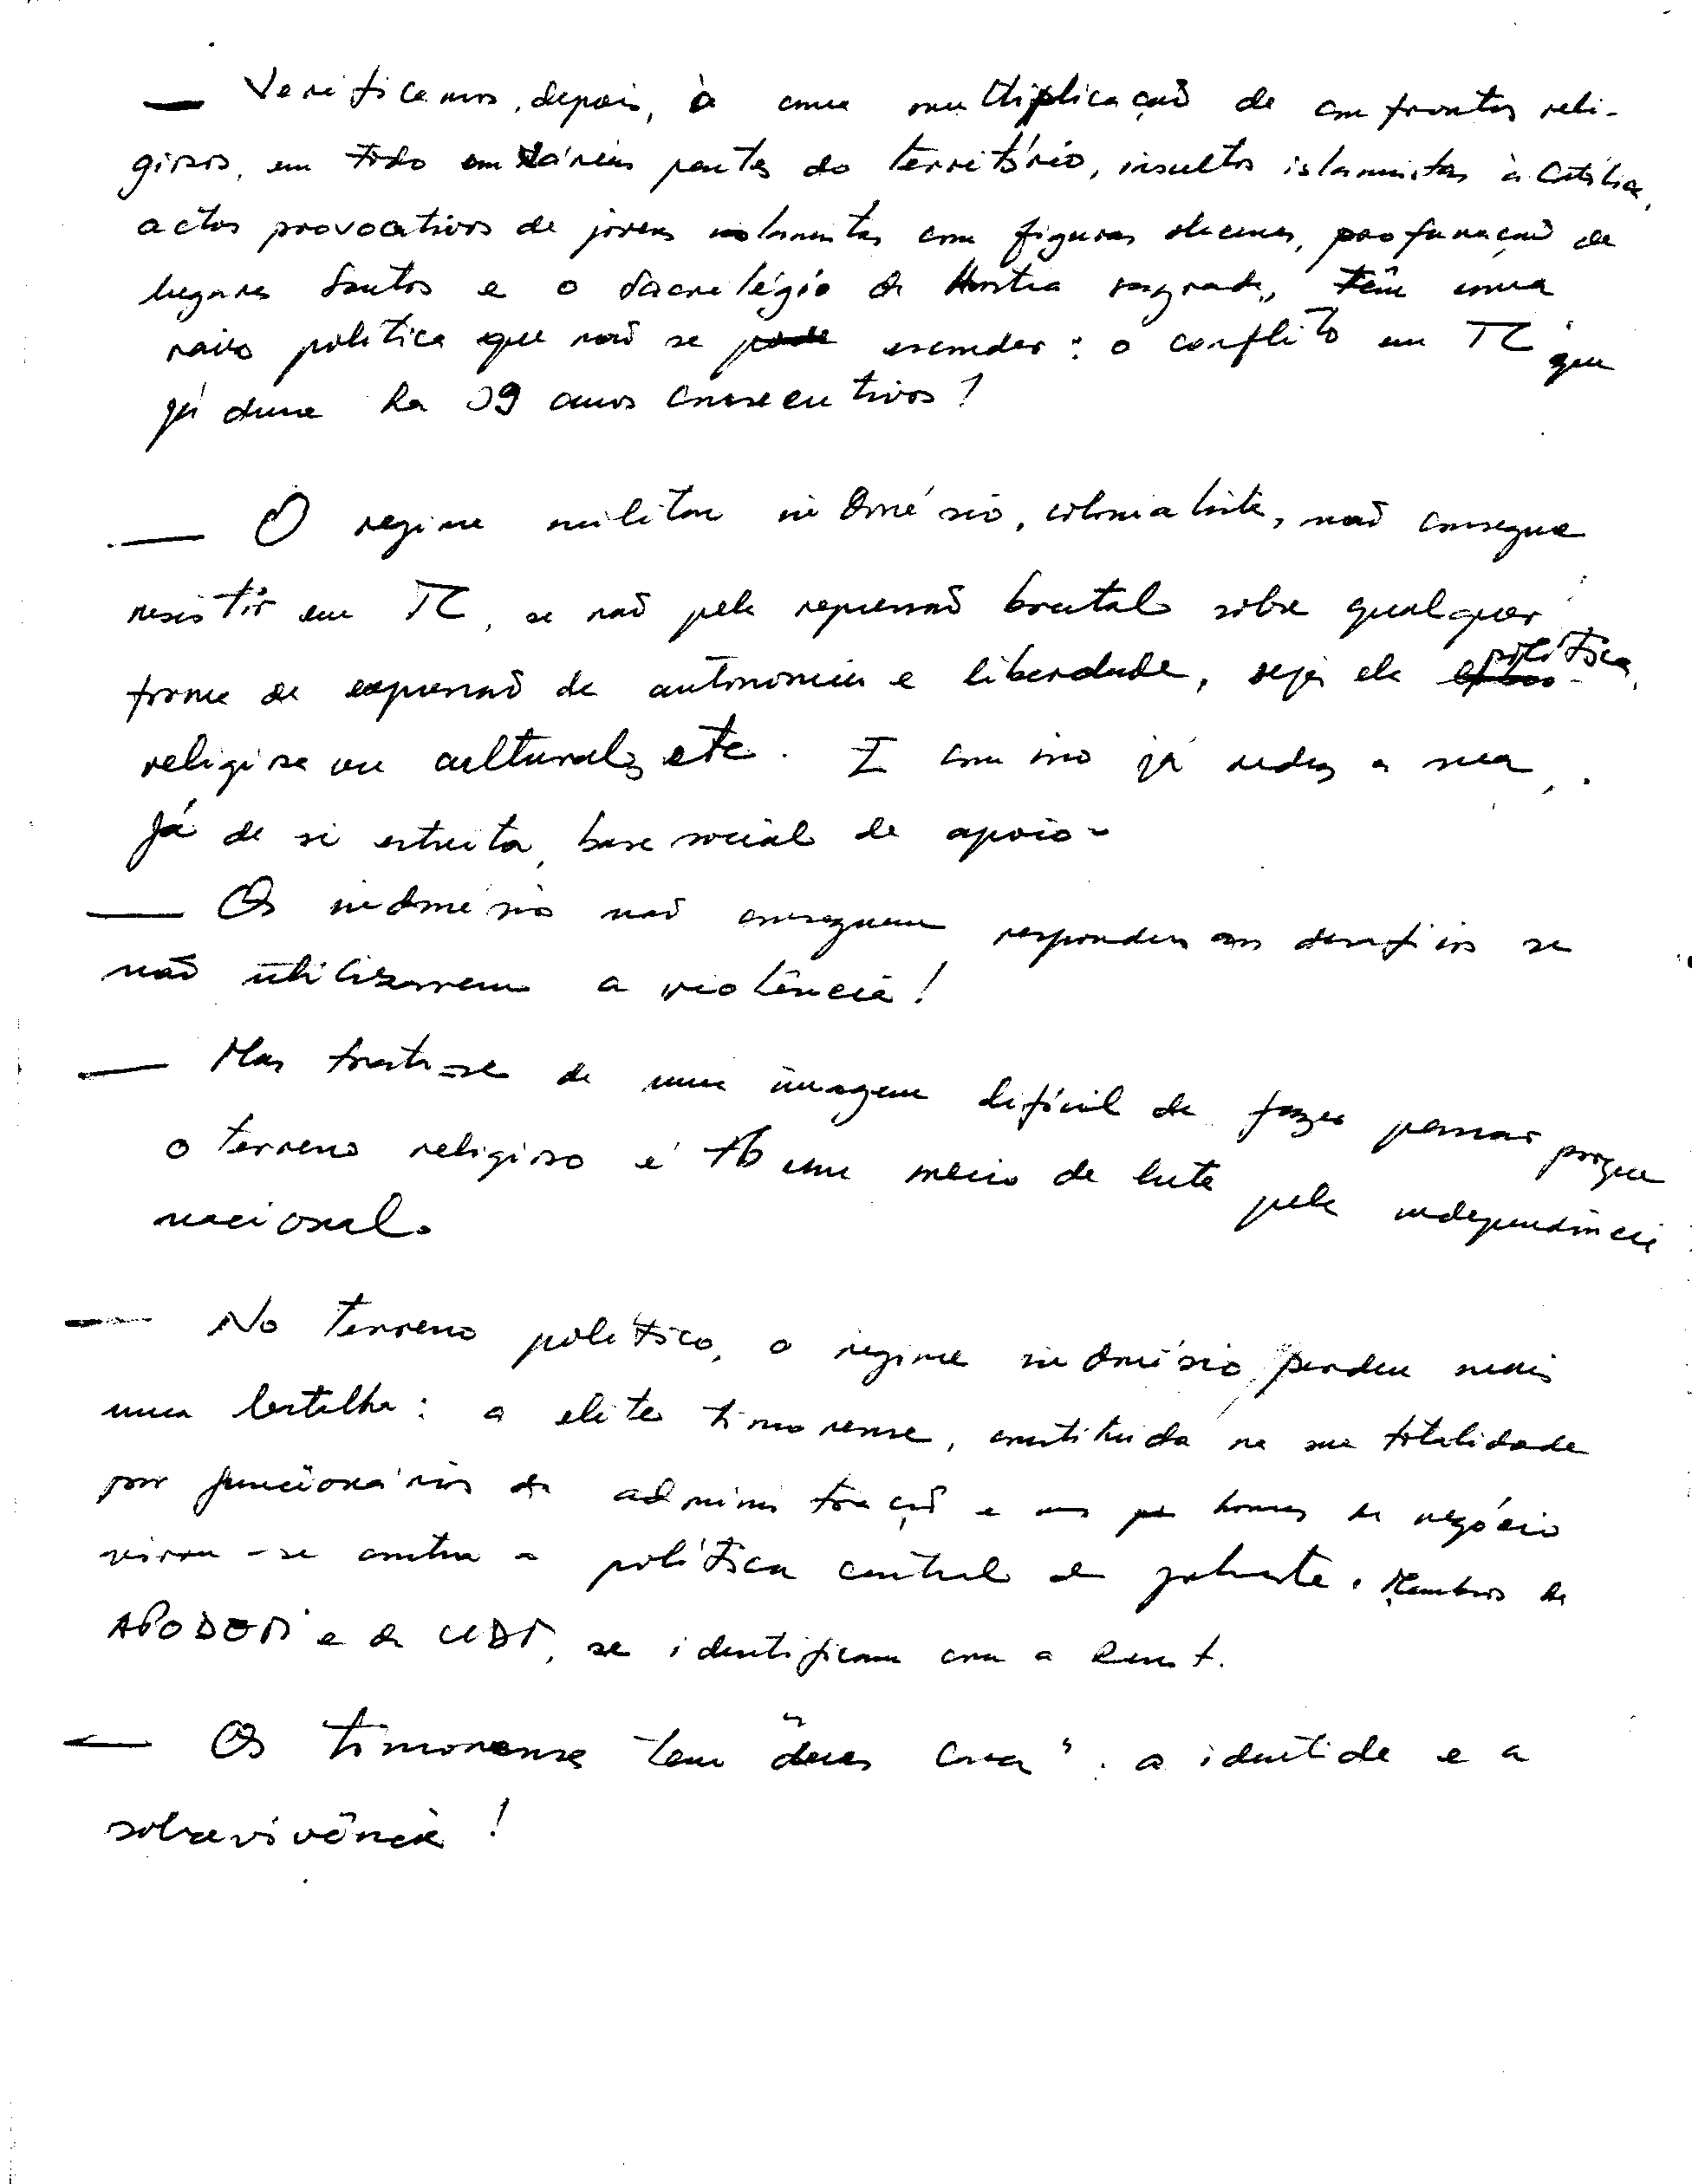 — Verificamos, depois, à uma multiplicação de confrontos reli-
giosos, em todo em várias partes do território, insultos islamistas à Católica,
actos provocativos de jovens islamistas com figuras obcenas, profanação de
lugares Santos e o sacrilégio da Hostia sagrada, têm uma
raiz política que não se pode esconder: o conflito em TL que
já dura há 19 anos consecutivos!
— O regime militar indonésio, colonialista, não consegue
resistir em TL, se não pela repressão brutal sobre qualquer
forma de expressão de autonomia e liberdade, seja ela política,
religiosa ou cultural, etc. E com isso já reduz a sua,
já de si estreita, base social de apoio.
— Os indonésios não conseguem responder aos desafios se
não utilizarem a violência!
— Mas trata-se de uma imagem difícil de fazer passar porque
o terreno religioso é tb um meio de luta pela independência
nacional.
— No terreno político, o regime indonésio perdeu mais
uma batalha: a elite timorense, constituida na sua totalidade
por funcionários da administração e homens de negócio
virou-se contra a política central de Jakarta. Membros da
APODETI e da UDT, se identificam com a Resist.
— Os timorenses tem duas "coisas": a identide e a
sobrevivência!